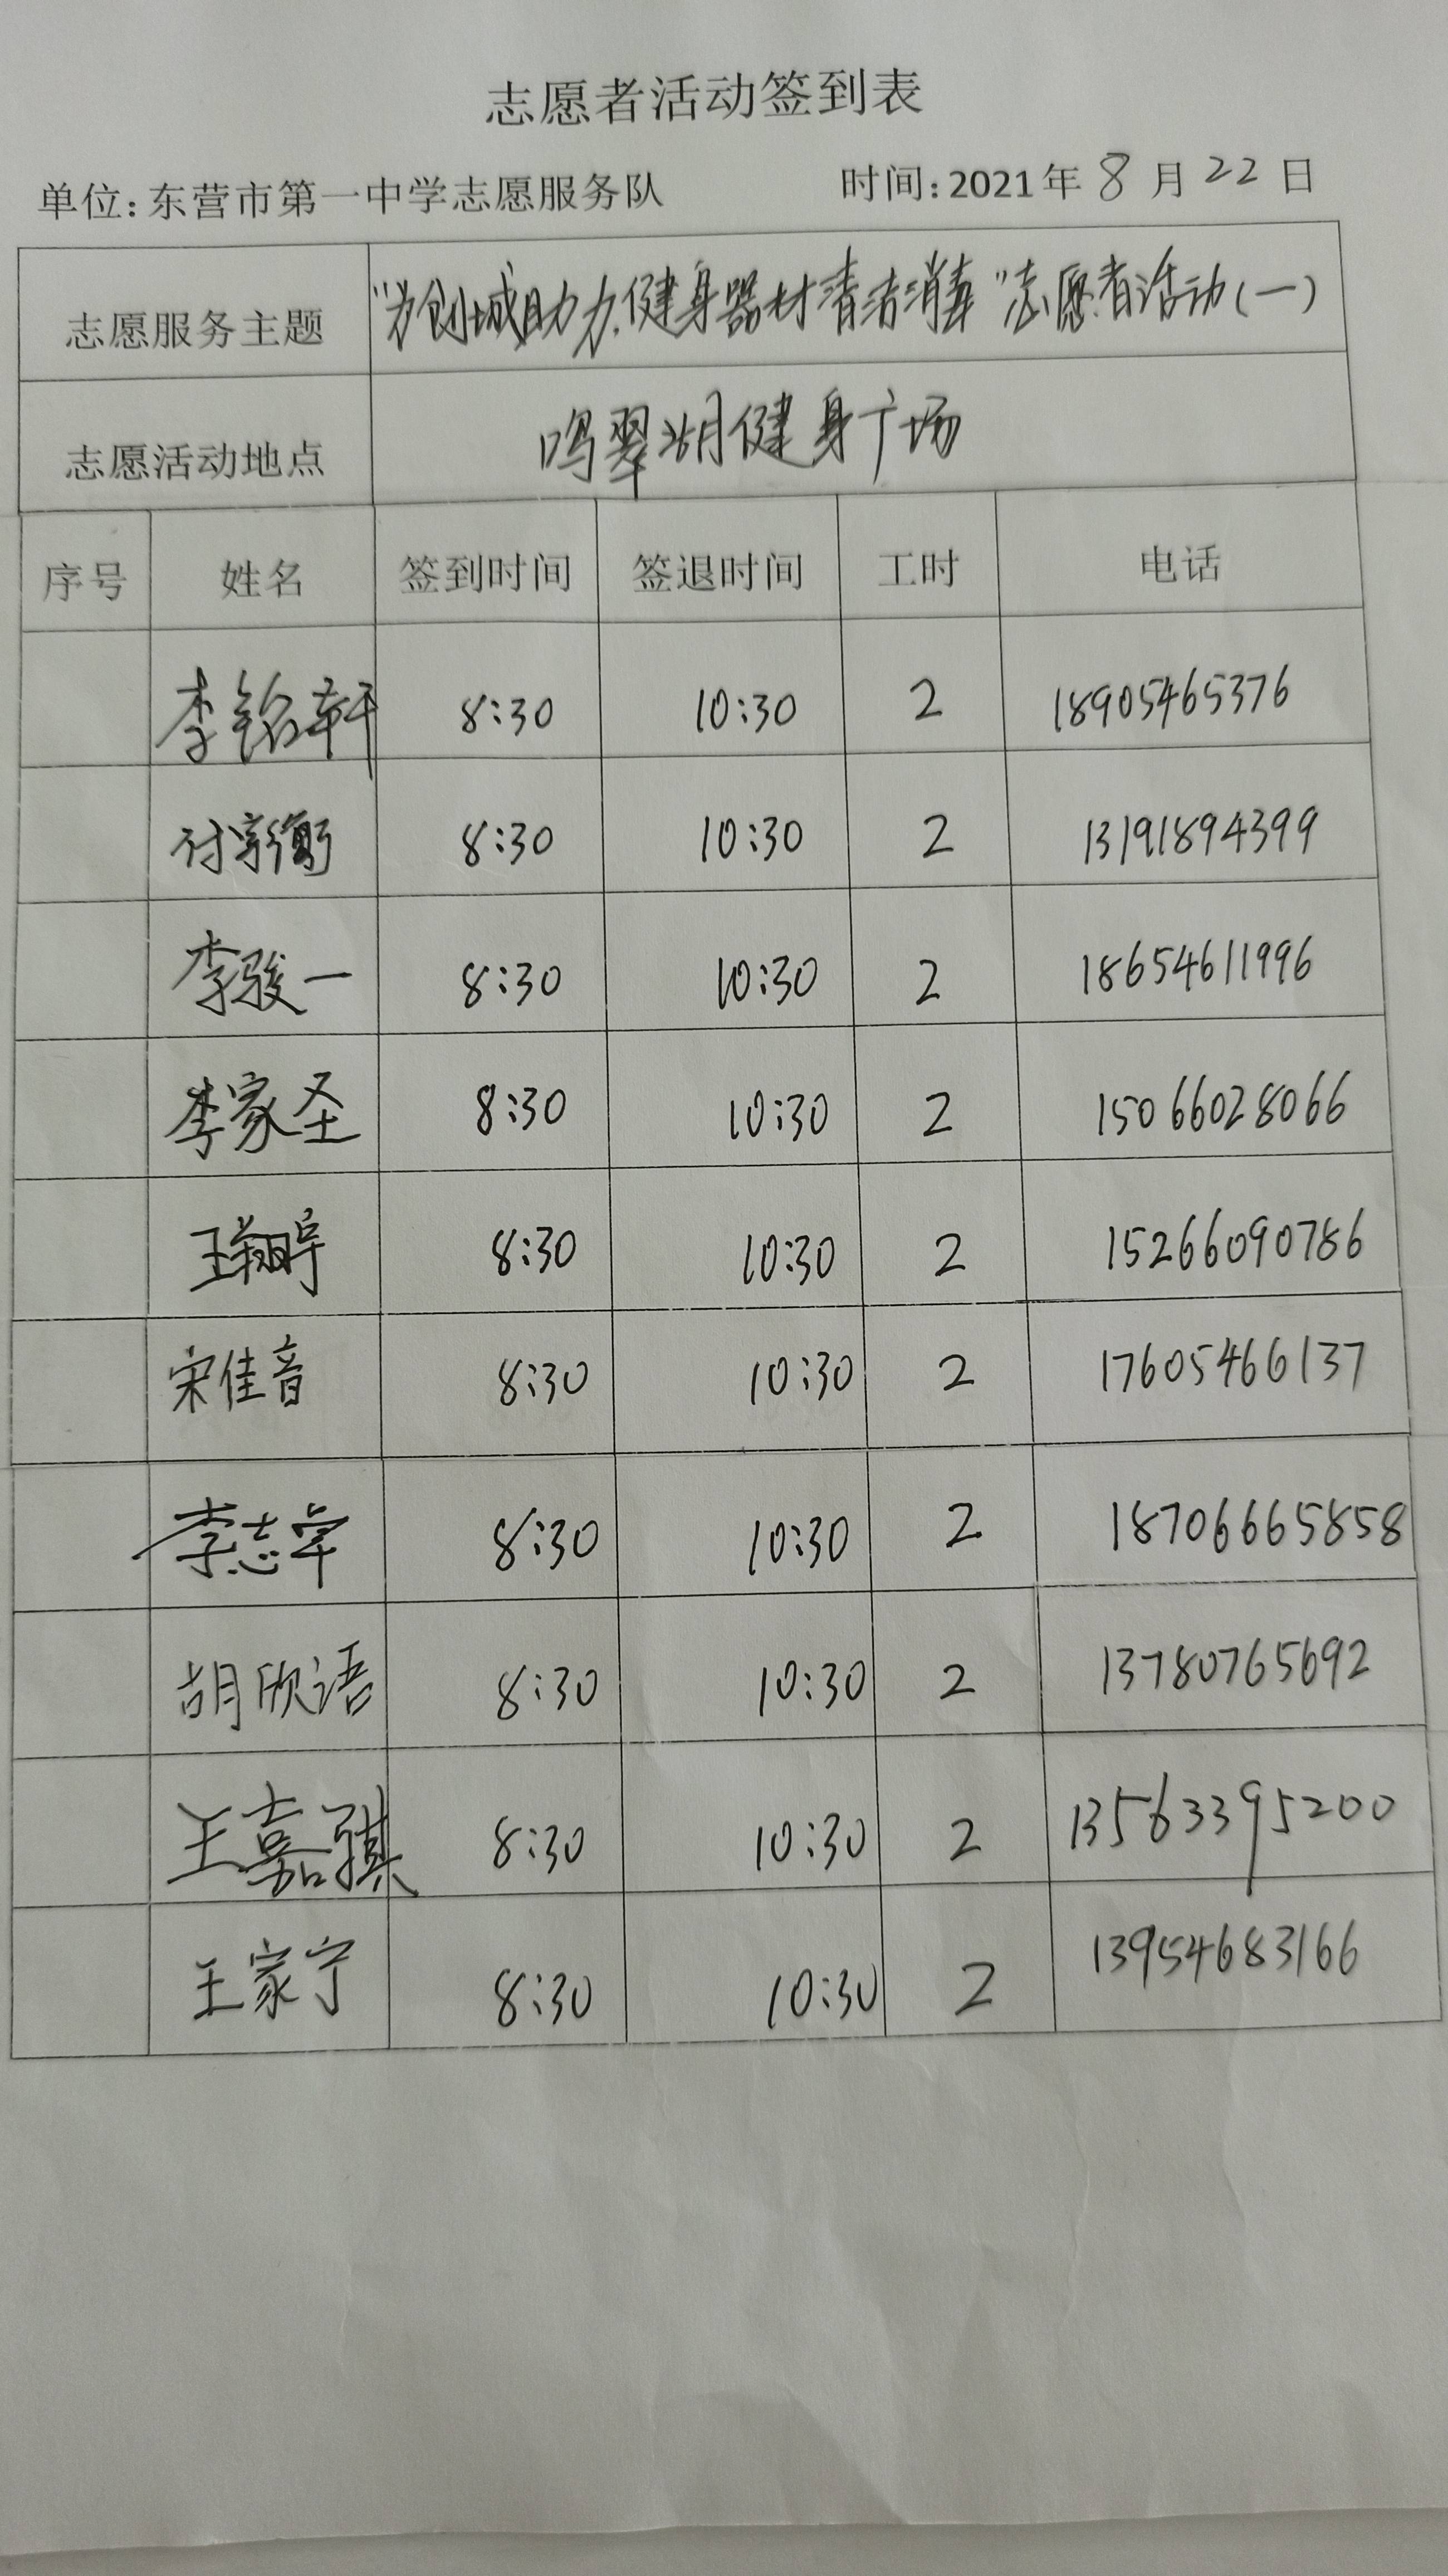 志愿者活动签到表
单位:东营市第一中学志愿服务队 时间:2021年8月22日
志愿服务主题 "为创城助力,健身器材清洁消毒"志愿者活动(一)
志愿活动地点 鸣翠湖健身广场
序号 姓名 签到时间 签退时间 工时 电话
李铭轩 8:30 10:30 2 18905465376
付宗衡 8:30 10:30 2 13191894399
李骏一 8:30 10:30 2 18654611996
李家圣 8:30 10:30 2 15066028066
王翔宇 8:30 10:30 2 15266090786
宋佳音 8:30 10:30 2 17605466137
李志 8:30 10:30 2 18706665858
胡欣语 8:30 10:30 2 13780765692
王嘉骐 8:30 10:30 2 13563395200
王家宁 8:30 10:30 2 13954683166